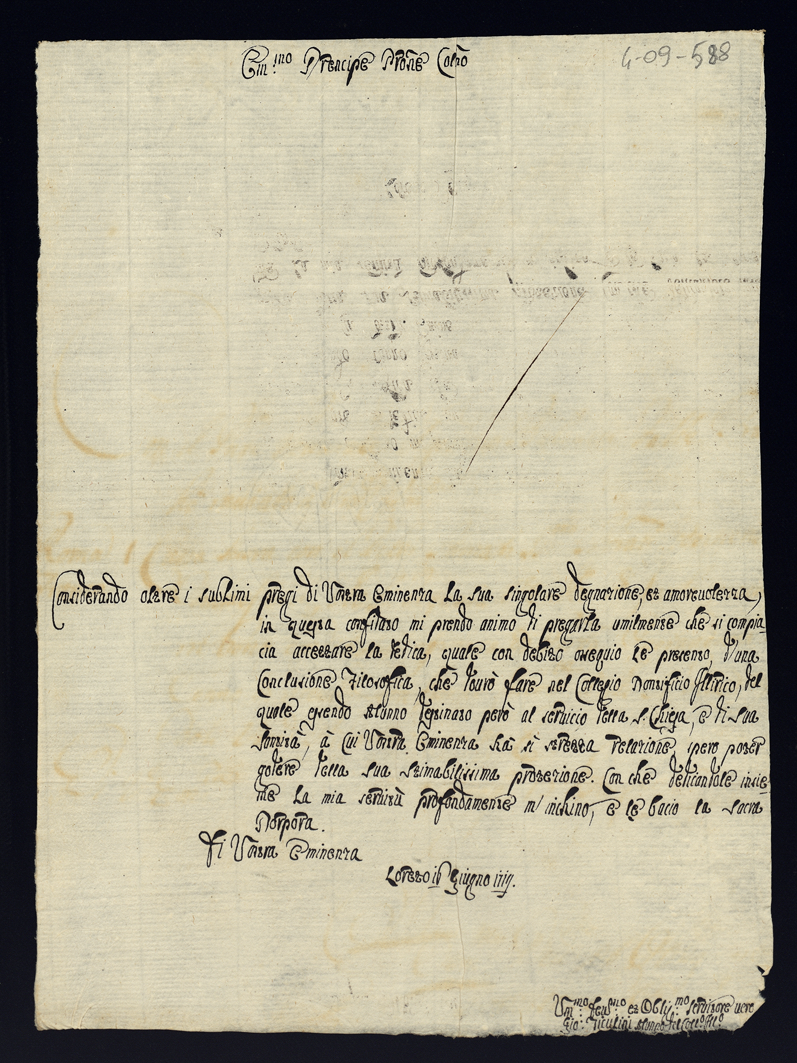 4-09-588
Em.mo Prencipe Prone Colmo
Considerando oltre i sublimi pregi di Vostra Eminenza La sua singolare degnazione, et amorevolezza,
in questa confitato mi prendo animo di pregarLa umilmente che si compia=
cia accettare La dedica, quale con debito ossequio Le presento, d'una
Conclusione Filosofica, che dourò fare nel Collegio Pontificio Illirico, del
quale essendo Alunno destinato però al servicio della S. Chiesa, e di sua
Santità, à cui Vostra Eminenza hà sì stretta relazione, spero poter
godere della sua stimabilissima protezione. Con che dedicandole insie=
me La mia servitù profondamente m'inchino, e le bacio la sacra
Porpora.
Di Vostra Eminenza
Loreto 16 Giugno
Um.mo Deu.mo et Obli.mo servitore vero
Gio: